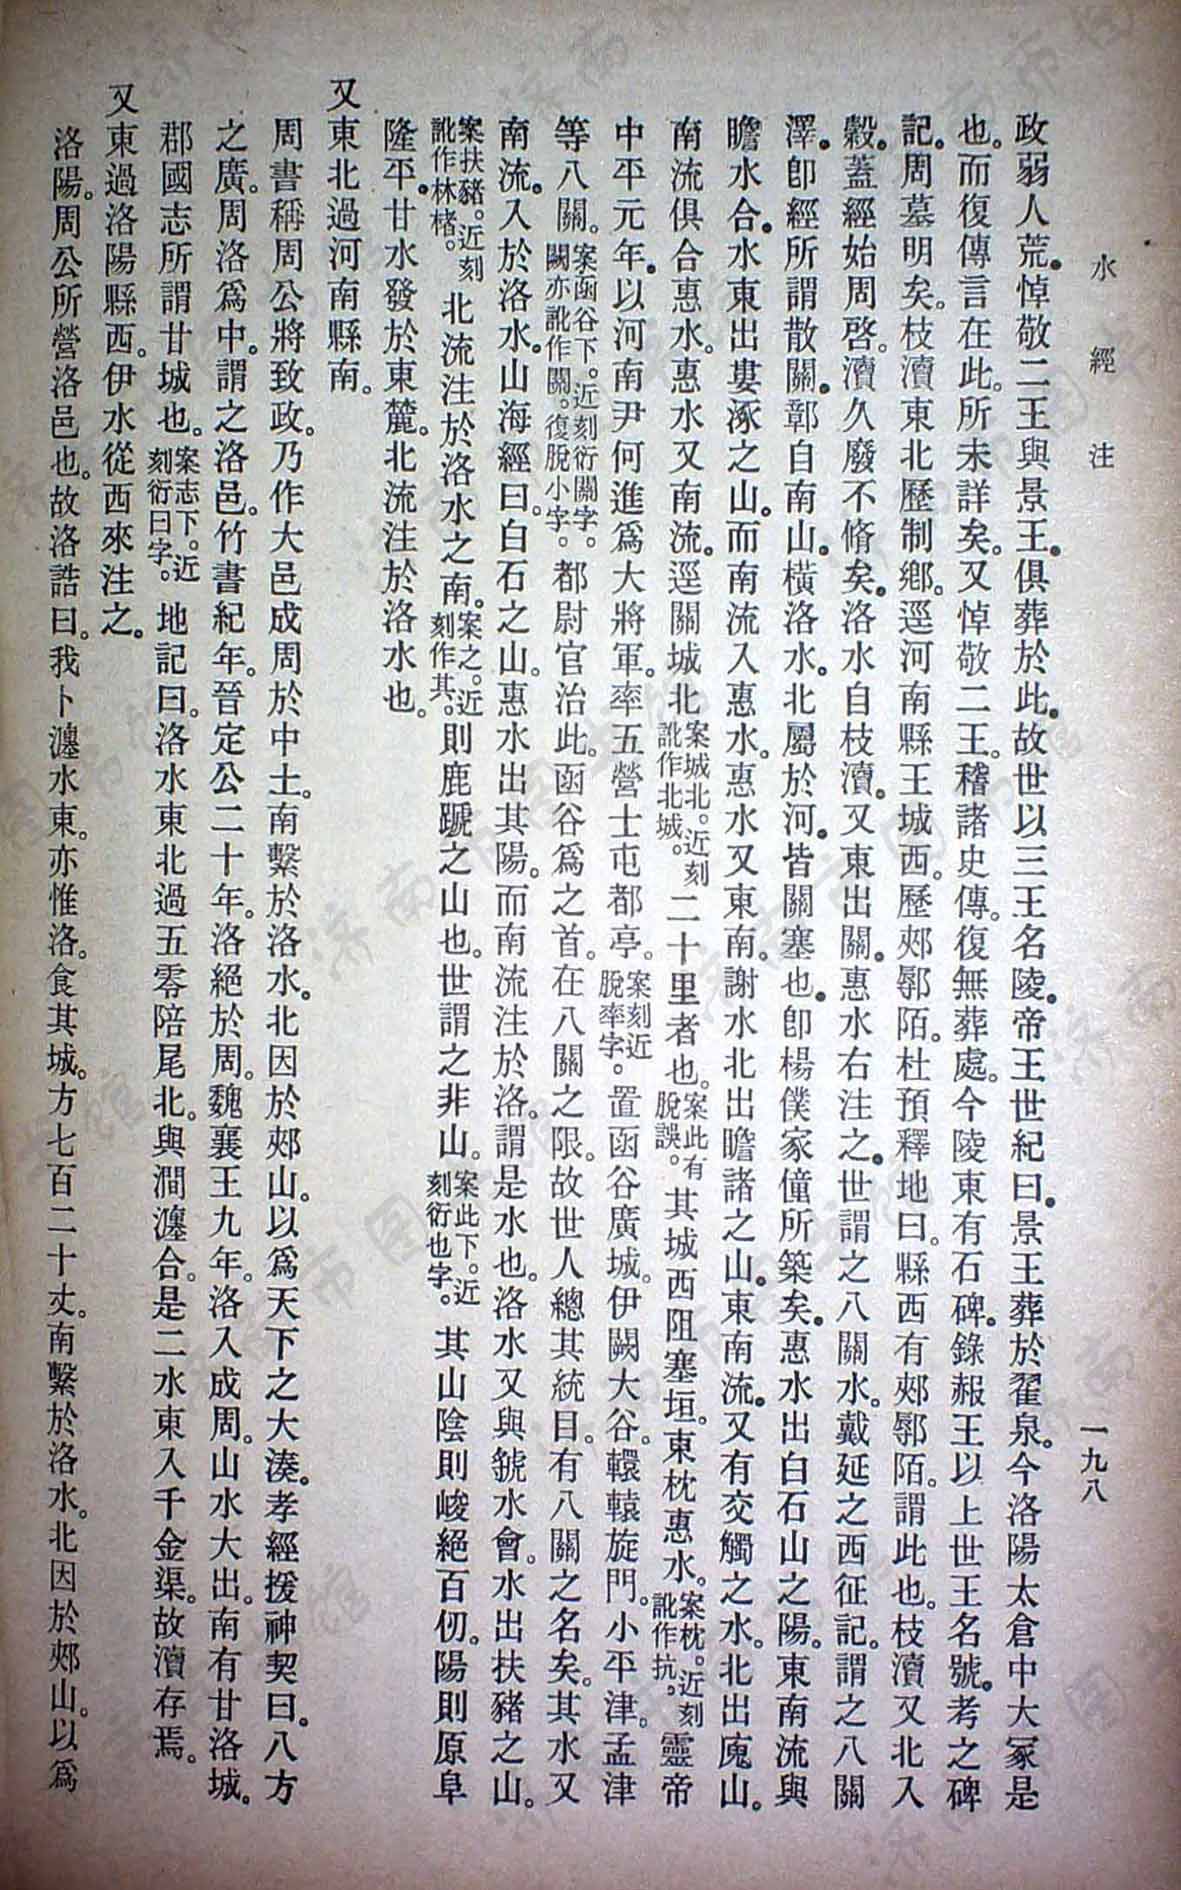 水經注
一九八
政弱人荒。悼敬二王與景王。俱葬於此。故世以三王名陵。帝王世紀曰。景王葬於翟泉。今洛陽太倉中大冢是
也。而復傳言在此。所未詳矣。又悼敬二王。稽諸史傳。復無葬處。今陵東有石碑。錄赧王以上世王名號。考之碑
記。周墓明矣。枝瀆東北歷制鄉。逕河南縣王城西。歷郟鄏陌。杜預釋地曰。縣西有郟鄏陌。謂此也。枝瀆又北入
穀。蓋經始周啓。瀆久廢不脩矣。洛水自枝瀆。又東出關。惠水右注之。世謂之八關水。戴延之西征記。謂之八關
澤。卽經所謂散關。鄣自南山。橫洛水。北屬於河。皆關塞也。卽楊僕家僮所築矣。惠水出白石山之陽。東南流與
瞻水合。水東出婁涿之山。而南流入惠水。惠水又東南。謝水北出瞻諸之山。東南流。又有交觸之水。北出廆山。
南流俱合惠水。惠水又南流。逕關城北案城北。近刻訛作北城。二十里者也。案此有脫誤。其城西阻塞垣。東枕惠水。案枕。近刻訛作抗。靈帝
中平元年。以河南尹何進爲大將軍。率五營士屯都亭。案刻近脫率字。置函谷廣城。伊闕大谷。轘轅旋門。小平津。孟津
等八關。案函谷下。近刻衍關字。闕亦訛作關。復脫小字。都尉官治此。函谷爲之首。在八關之限。故世人總其統目。有八關之名矣。其水又
南流。入於洛水。山海經曰。白石之山。惠水出其陽。而南流注於洛。謂是水也。洛水又與虢水會。水出扶豬之山。
案扶豬。近刻訛作林楮。北流注於洛水之南。案之。近刻作其。則鹿蹏之山也。世謂之非山。案此下。近刻衍也字。其山陰則峻絕百仞。陽則原阜
隆平。甘水發於東麓。北流注於洛水也。
又東北過河南縣南。
周書稱周公將致政。乃作大邑成周於中土。南繫於洛水。北因於郟山。以爲天下之大湊。孝經援神契曰。八方
之廣。周洛爲中。謂之洛邑。竹書紀年。晉定公二十年。洛絕於周。魏襄王九年。洛入成周。山水大出。南有甘洛城。
郡國志所謂甘城也。案志下。近刻衍曰字。地記曰。洛水東北過五零陪尾北。與澗瀍合。是二水東入千金渠。故瀆存焉。
又東過洛陽縣西。伊水從西來注之。
洛陽。周公所營洛邑也。故洛誥曰。我卜瀍水東。亦惟洛。食其城。方七百二十丈。南繫於洛水。北因於郟山。以爲